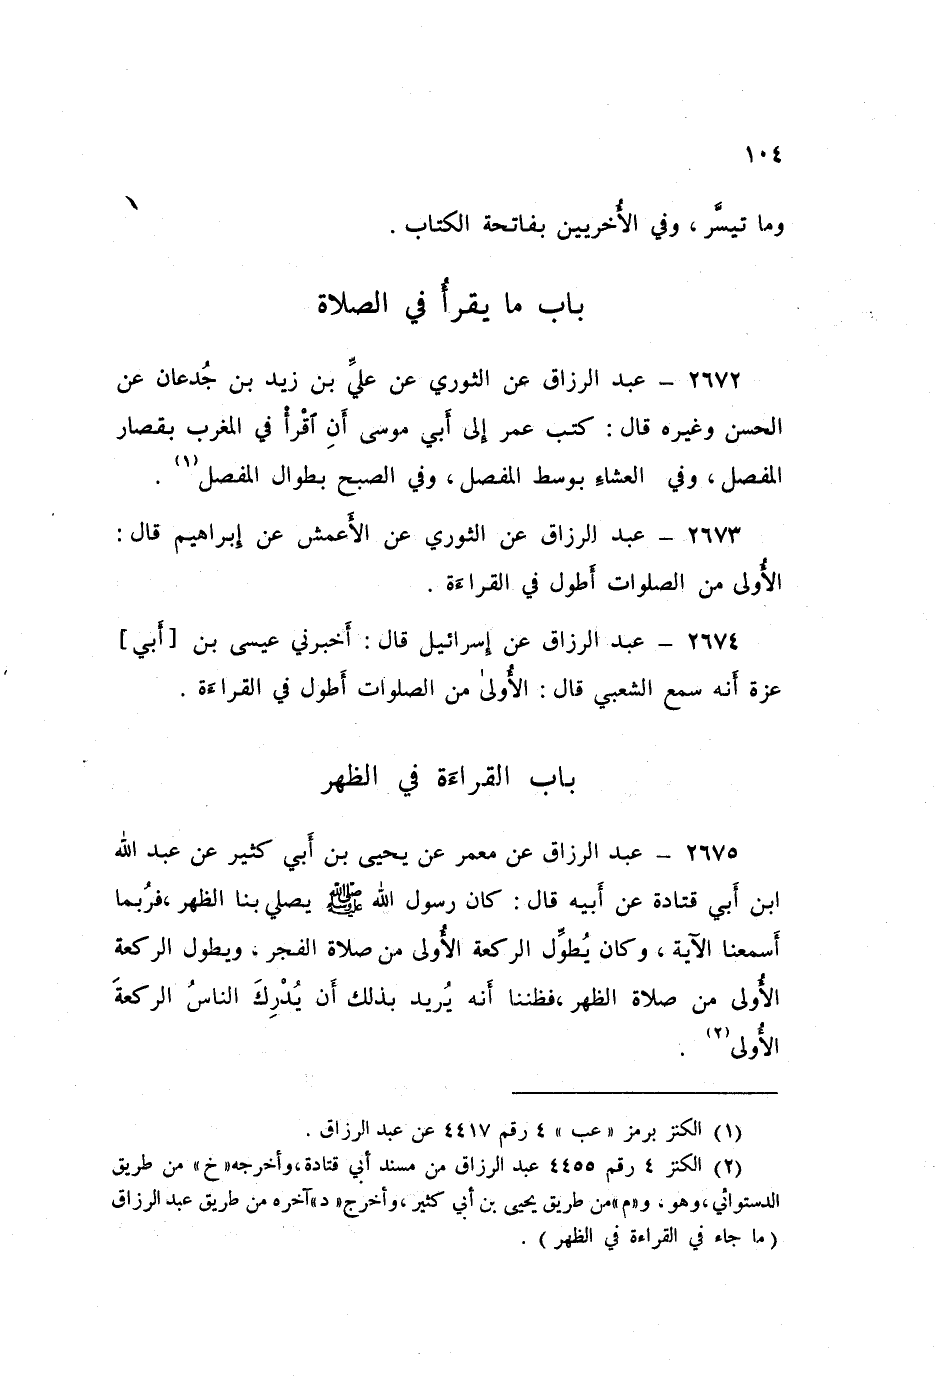 ١٠٤
وما تيسَّر ، وفي الأُخريين بفاتحة الكتاب .
باب ما يقرأُ في الصلاة
٢٦٧٢ – عبد الرزاق عن الثوري عن عليِّ بن زيد بن جُدعان عن
الحسن وغيره قال : كتب عمر إلى أَبي موسى أَنِ ٱقْرأْ في المغرب بقصار
المفصل ، وفي العشاءِ بوسط المفصل ، وفي الصبح بطوال المفصل(١) .
٢٦٧٣ – عبد الرزاق عن الثوري عن الأَعمش عن إبراهيم قال :
الأُولى من الصلوات أَطول في القراءَة .
٢٦٧٤ – عبد الرزاق عن إسرائيل قال : أَخبرني عيسى بن [أَبي]
عزة أَنه سمع الشعبي قال : الأُولىٰ من الصلوات أَطول في القراءَة .
باب القراءَة في الظهر
٢٦٧٥ – عبد الرزاق عن معمر عن يحيى بن أَبي كثير عن عبد الله
ابن أَبي قتادة عن أَبيه قال : كان رسول الله ﷺ يصلي بنا الظهر ،فرُبما
أَسمعنا الآية ، وكان يُطوِّل الركعة الأُولى من صلاة الفجر ، ويطول الركعة
الأُولى من صلاة الظهر ،فظننا أَنه يُريد بذلك أَن يُدْرِكَ الناسُ الركعةَ
الأُولى(٢) .
(١) الكنز برمز «عب» ٤ رقم ٤٤١٧ عن عبد الرزاق .
(٢) الكنز ٤ رقم ٤٤٥٥ عبد الرزاق من مسند أبي قتادة،وأخرجه«خ» من طريق
الدستوائي،وهو ، و«م»من طريق يحيى بن أبي كثير ،وأخرج«د»آخره من طريق عبد الرزاق
( ما جاء في القراءة في الظهر ) .